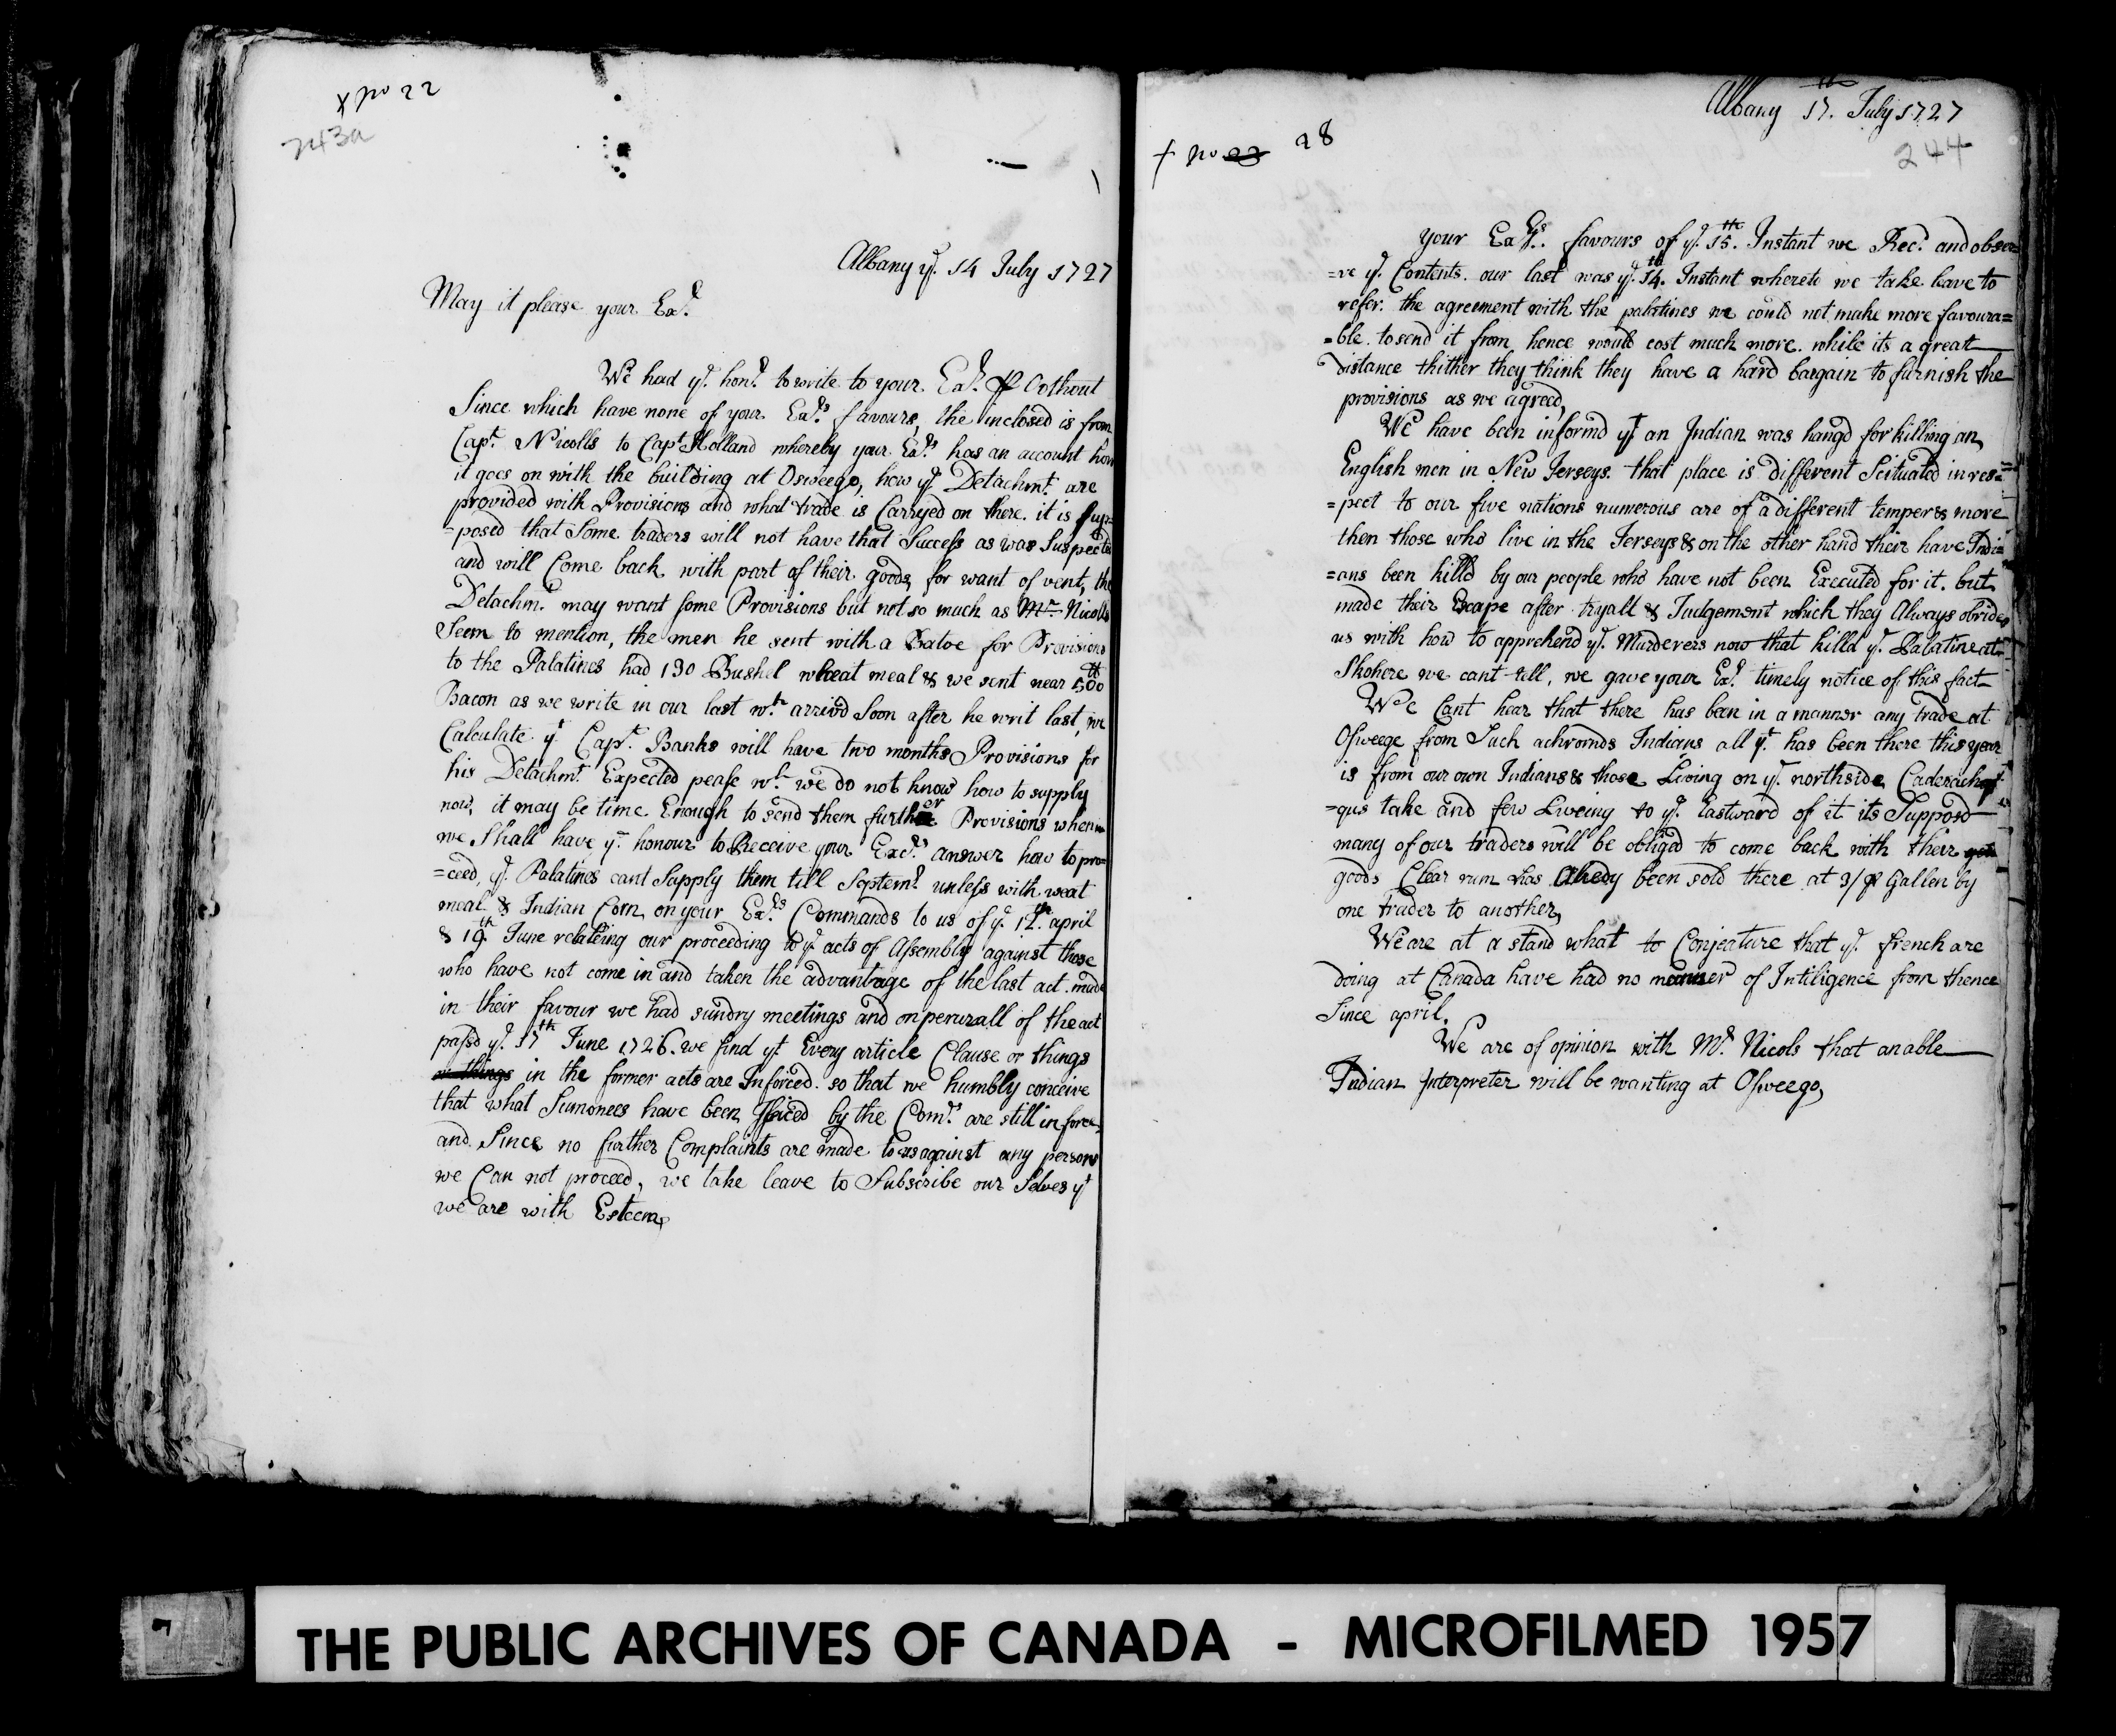 x No 22
243a
Albany ye. 14 July 1727
May it please your Exy.
We had ye. honr. to write to your Exy. pr Oothout
Since which have none of your Exys. favours, the inclosed is from
Capt. Nicolls to Capt. Holland whereby your Exy. has an account how
it goes on with the building at Osweego, how ye Detachmt. are
provided with Provisions and what trade is Carryed on there. it is Sup=
=posed that Some traders will not have that Success as was Suspected
and will Come back with part of their goods for want of vent, the
Detachmt. may want some Provisions but not so much as Mr. Nicolls
Seem to mention, the men he sent with a Batoe for Provisions
to the Palatines had 130 Bushel wheat meal & we sent near 500 tt
Bacon as we write in our last wh. arrivd Soon after he writ last, we
Calculate yt Capt. Banks will have two months Provisions for
his Detachmt. Expected pease wh. we do not know how to supply
now, it may be time Enough to send them further Provisions when
we Shall have ye. honour to Receive your Excys. answer how to pro=
=ceed, ye. Palatines cant Supply them till Septemr. unless with weat
meal & Indian Corn, on your Exys. Commands to us of ye. 12th. april
& 19th. June relateing our proceeding to ye. acts of Assembly against those
who have not come in and taken the advantage of the last act made
in their favour we had sundry meetings and on perurzall of the act
passd ye. 17th June 1726. we find yt Every article Clause or things
or things in the former acts are Inforced. so that we humbly conceive
that what Sumonees have been Issued by the Comrs. are still in force,
and Since no further Complaints are made to us against any persons
we Can not proceed, we take leave to Subscribe our Selves yt
we are with Esteem,
Albany 17th. July 1727
+ No 23 28
244
your Exys. favours of ye. 15th. Instant we Recd. and obser=
=ve ye. Contents. our last was ye. 14th. Instant whereto we take leave to
refer. the agreement with the palatines we could not make more favoura=
=ble. to send it from hence would cost much more. while its a great
Distance thither they think they have a hard bargain to furnish the
provisions as we agreed,
We have been informd yt an Indian was hangd for killing an
English men in New Jerseys. that place is different Scituated in res=
=pect to our five nations numerous are of a different temper & more
then those who live in the Jerseys & on the other hand their have Indi=
=ans been killd by our people who have not been Executed for it. but
made their Escape after tryall & Judgement which they Always obrides
us with how to apprehend ye. Murderers now that killd ye. Palatine at
Skohere we cant tell, we gave your Exy. timely notice of this fact
We Cant hear that there has been in a manner any trade at
Osweege from Such achromds Indians all yt. has been there this year
is from our own Indians & those Living on ye. northside Caderach
=qus take and few Liveing to ye. Eastward of it its Supposd
many of our traders will be obligd to come back with their
goods Clear rum has Alredy been sold there at 3/ pr Gallen by
one trader to another,
We are at a stand what to Conjeature that ye. french are
doing at Canada have had no manner of Intiligence from thence
Since april.
We are of opinion with Mr. Nicols that an able
Indian Interpreter will be wanting at Osweego,
THE PUBLIC ARCHIVES OF CANADA - MICROFILMED 1957